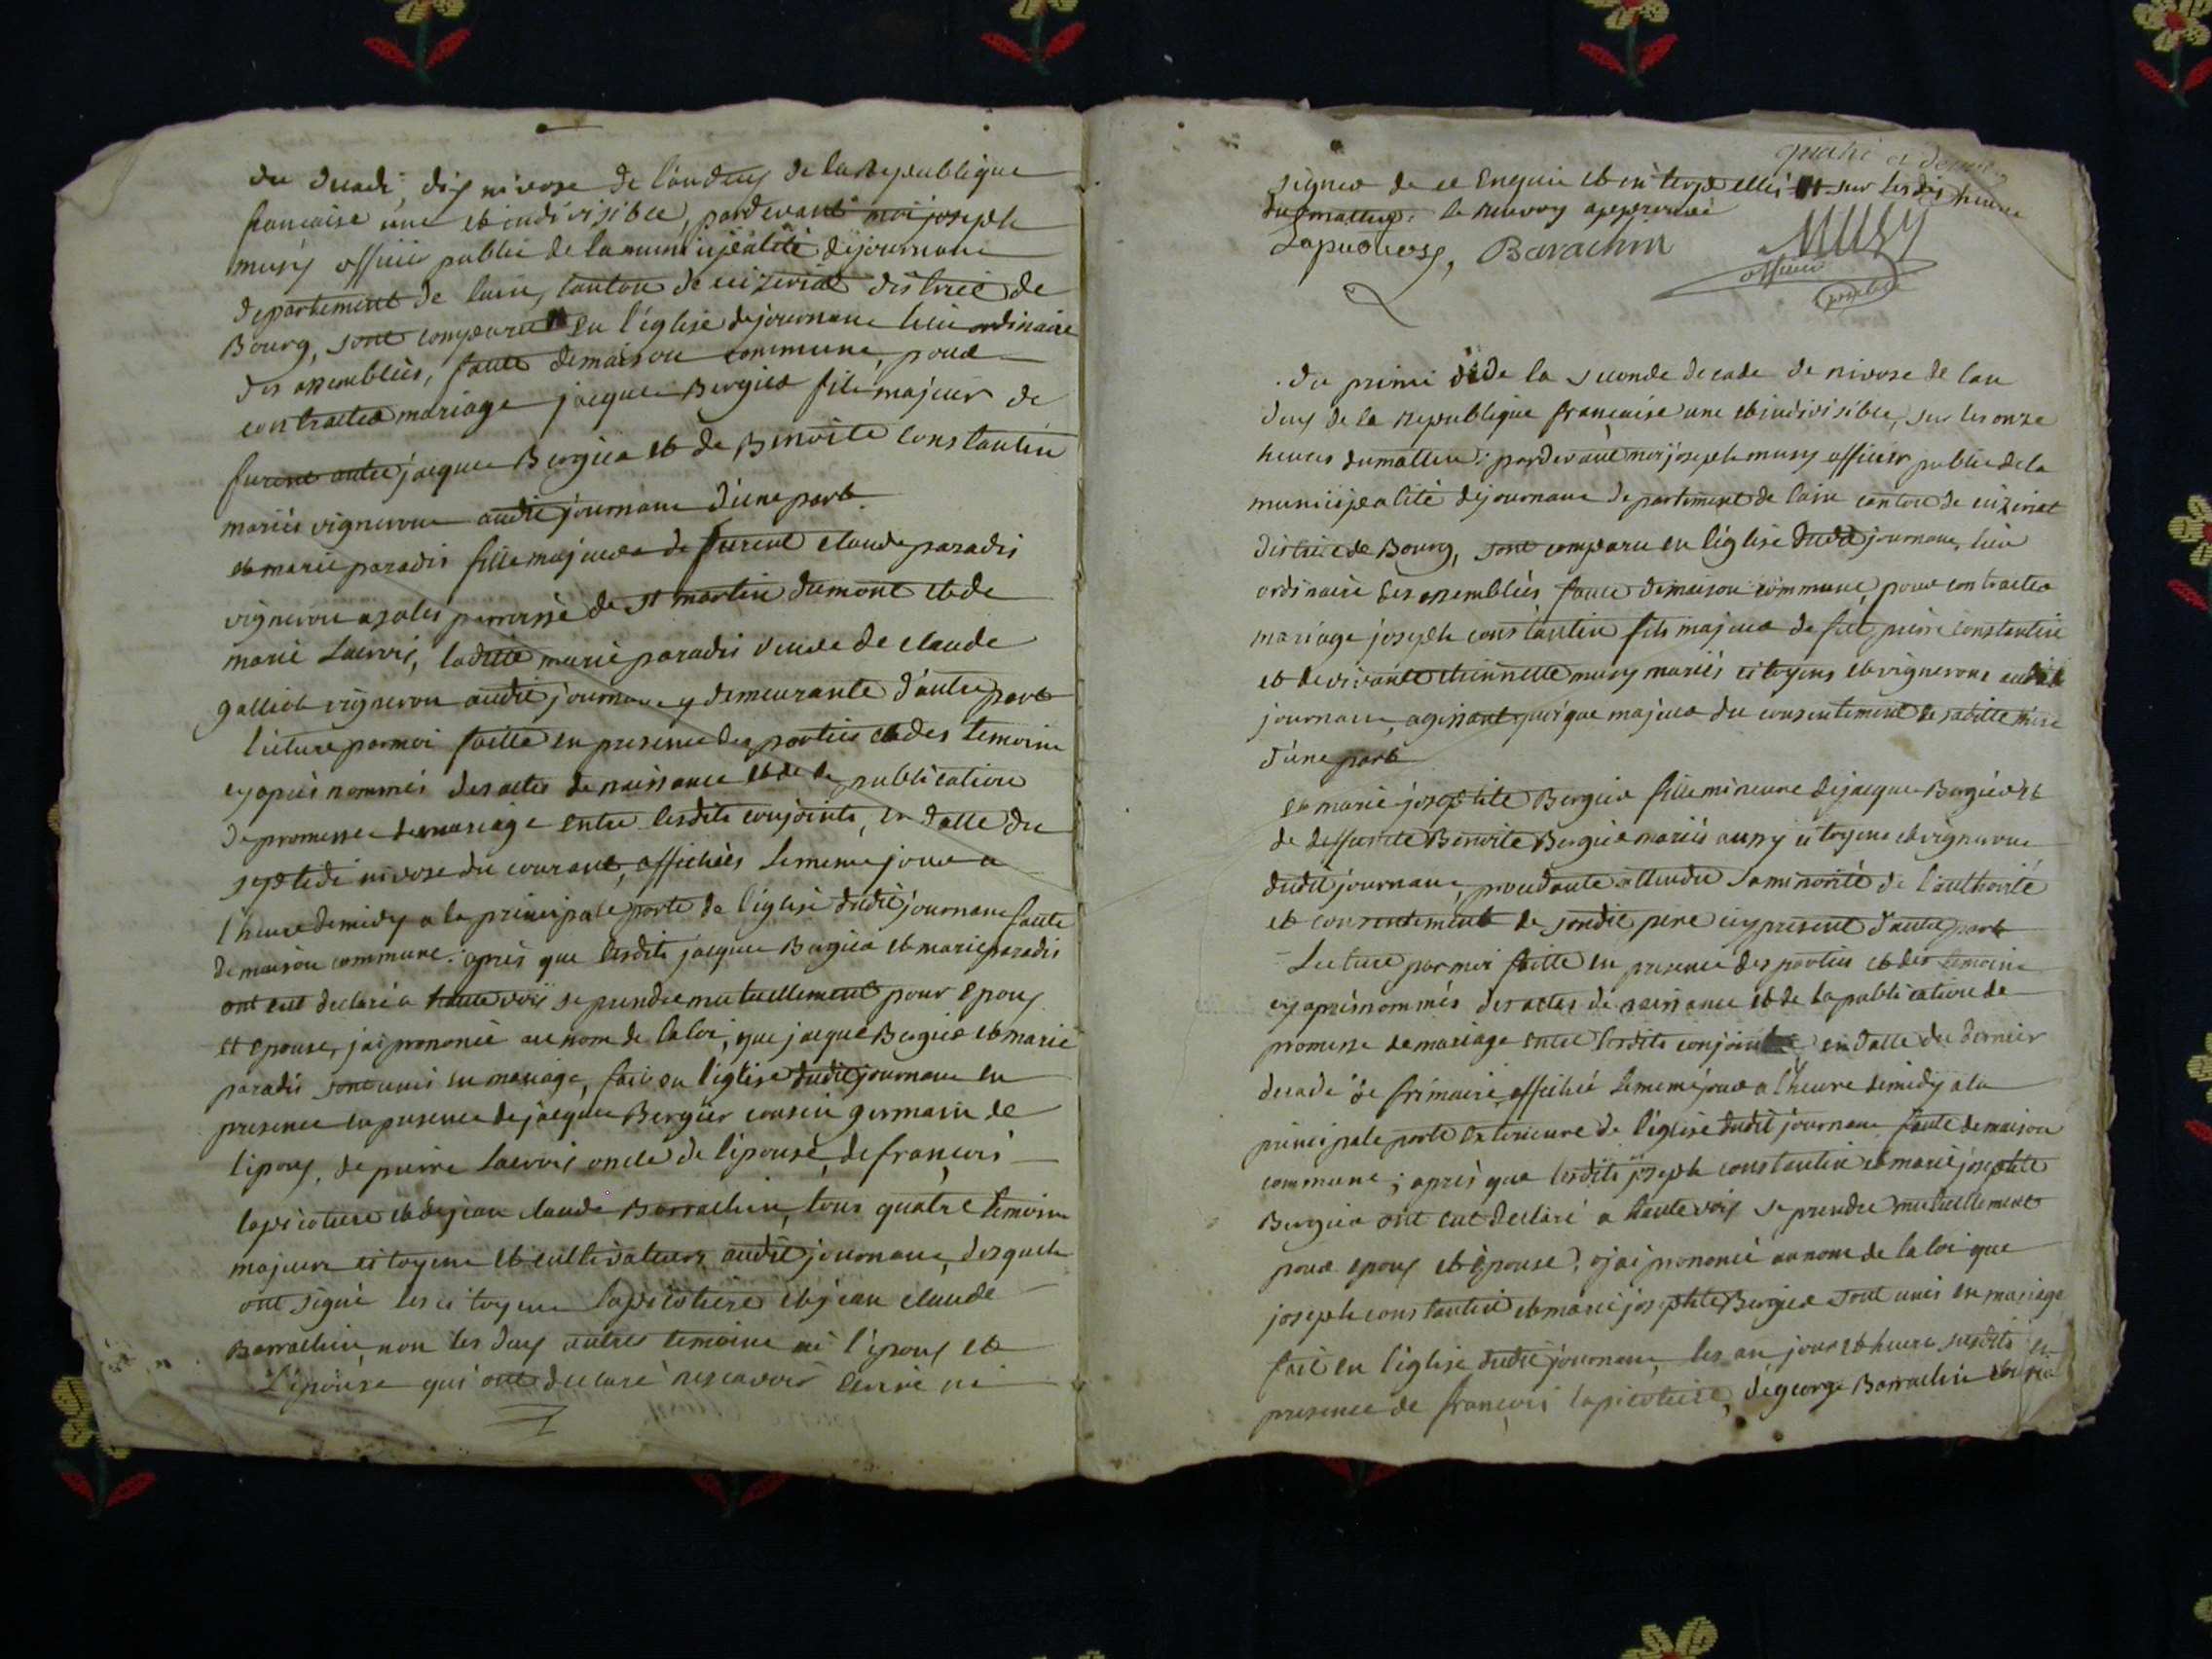 du decadi dix nivose de l'an deux de la Republique
francaise une et indivisible, pardevant moi joseph
musy officier public de la municipalité dejournans
departement de lain, canton de ceizeriat district de
Bourg, sont comparus en l'église dejournans lieu ordinaire
des assemblées, faute demaison commune, pour
contracter mariage jacques Bergier fils majeur de
furent autre jacques Bergier et de Benoite constantin
mariés vignerons audit journans d'une part
et marie paradis fille majeure de furent claude paradis
vigneron a sales parroisse de st martin dumont et de
marie Lacroix, laditte marie paradis veuve de claude
galliet vigneron audit journans y demeurante d'autre part
lecture parmoi faitte en presence des parties et des temoins
cy apres nommés des actes de naissance et de la publication
de promesse de mariage entre lesdits conjoints, en datte du
septidi nivose du courant, affichées le meme jour a
l'heure demidy a la principale porte de l'église dudit journans faute
de maison commune; apres que lesdits jacques Bergier et marie paradis
ont eut declaré a haute voix se prendre mutuellement pour epoux
et epouse, jai prononcé au nom de la loi, que jacques Bergier et marie
paradis sont unis en mariage, fait en l'église dudit journans en
presence en presence de jacques Bergier cousin germain de
l'epoux, de pierre Lacroix oncle de l'epouse, de francois
lapicotiere et de jean claude Barrachin, tous quatre temoins
majeurs citoyens et cultivateurs audit journans, desquels
ont signé les citoyens lapicotiere et jean claude
Barrachin, non les deux autres temoins ni l'epoux et
L'epouse qui ont declaré ne scavoir ecrire ni
signer de ce Enquis et interpellés sur les dix heures
du mattin. le renvoy approuvé
Lapicotiere, Barachin Musy
officier
public
du primi de la seconde decade de nivose de lan
deux de la Republique francaise une et indivisible, sur les onze
heures dumattin; pardevant moi joseph musy officier public de la
municipalité dejournans departement de lain canton de ceizeriat
district de Bourg, sont comparu en l'église dudit journans, lieu
ordinaire des assemblées faute demaison commune, pour contracter
mariage joseph constantin fils majeur de fut pierre constantin
et de vivante etiennette musy mariés citoyens et vignerons audit
journans, agissant quoique majeur du consentement de saditte mere
d'une part
et marie josephte Bergier fille mineure dejacques Bergier et
de deffunte Benoite Bergier mariés aussy citoyens et vignerons
dudit journans, procedante attendu sa minorité de l'authorité
et consentement de sondit pere icy present d'autre part
Lecture par moi faitte en presence des parties et des temoins
cy apres nommés des actes de naissance et de la publication de
promesse de mariage entre lesdits conjoints en datte du dernier
decade de frimaire affiché le meme jour a l'heure demidy a la
principale porte exterieure de l'église dudit journans faute demaison
commune; apres que lesdits joseph constantin et marie josephte
Bergier ont eut declaré a haute voix se prendre mutuellement
pour epoux et epouse, jai prononcé au nom de la loi que
joseph constantin et marie josephte Bergier sont unis en mariage
fait en l'église dudit journans, les an jour et heure susdits en
presence de francois lapicotiere, de george Barrachin